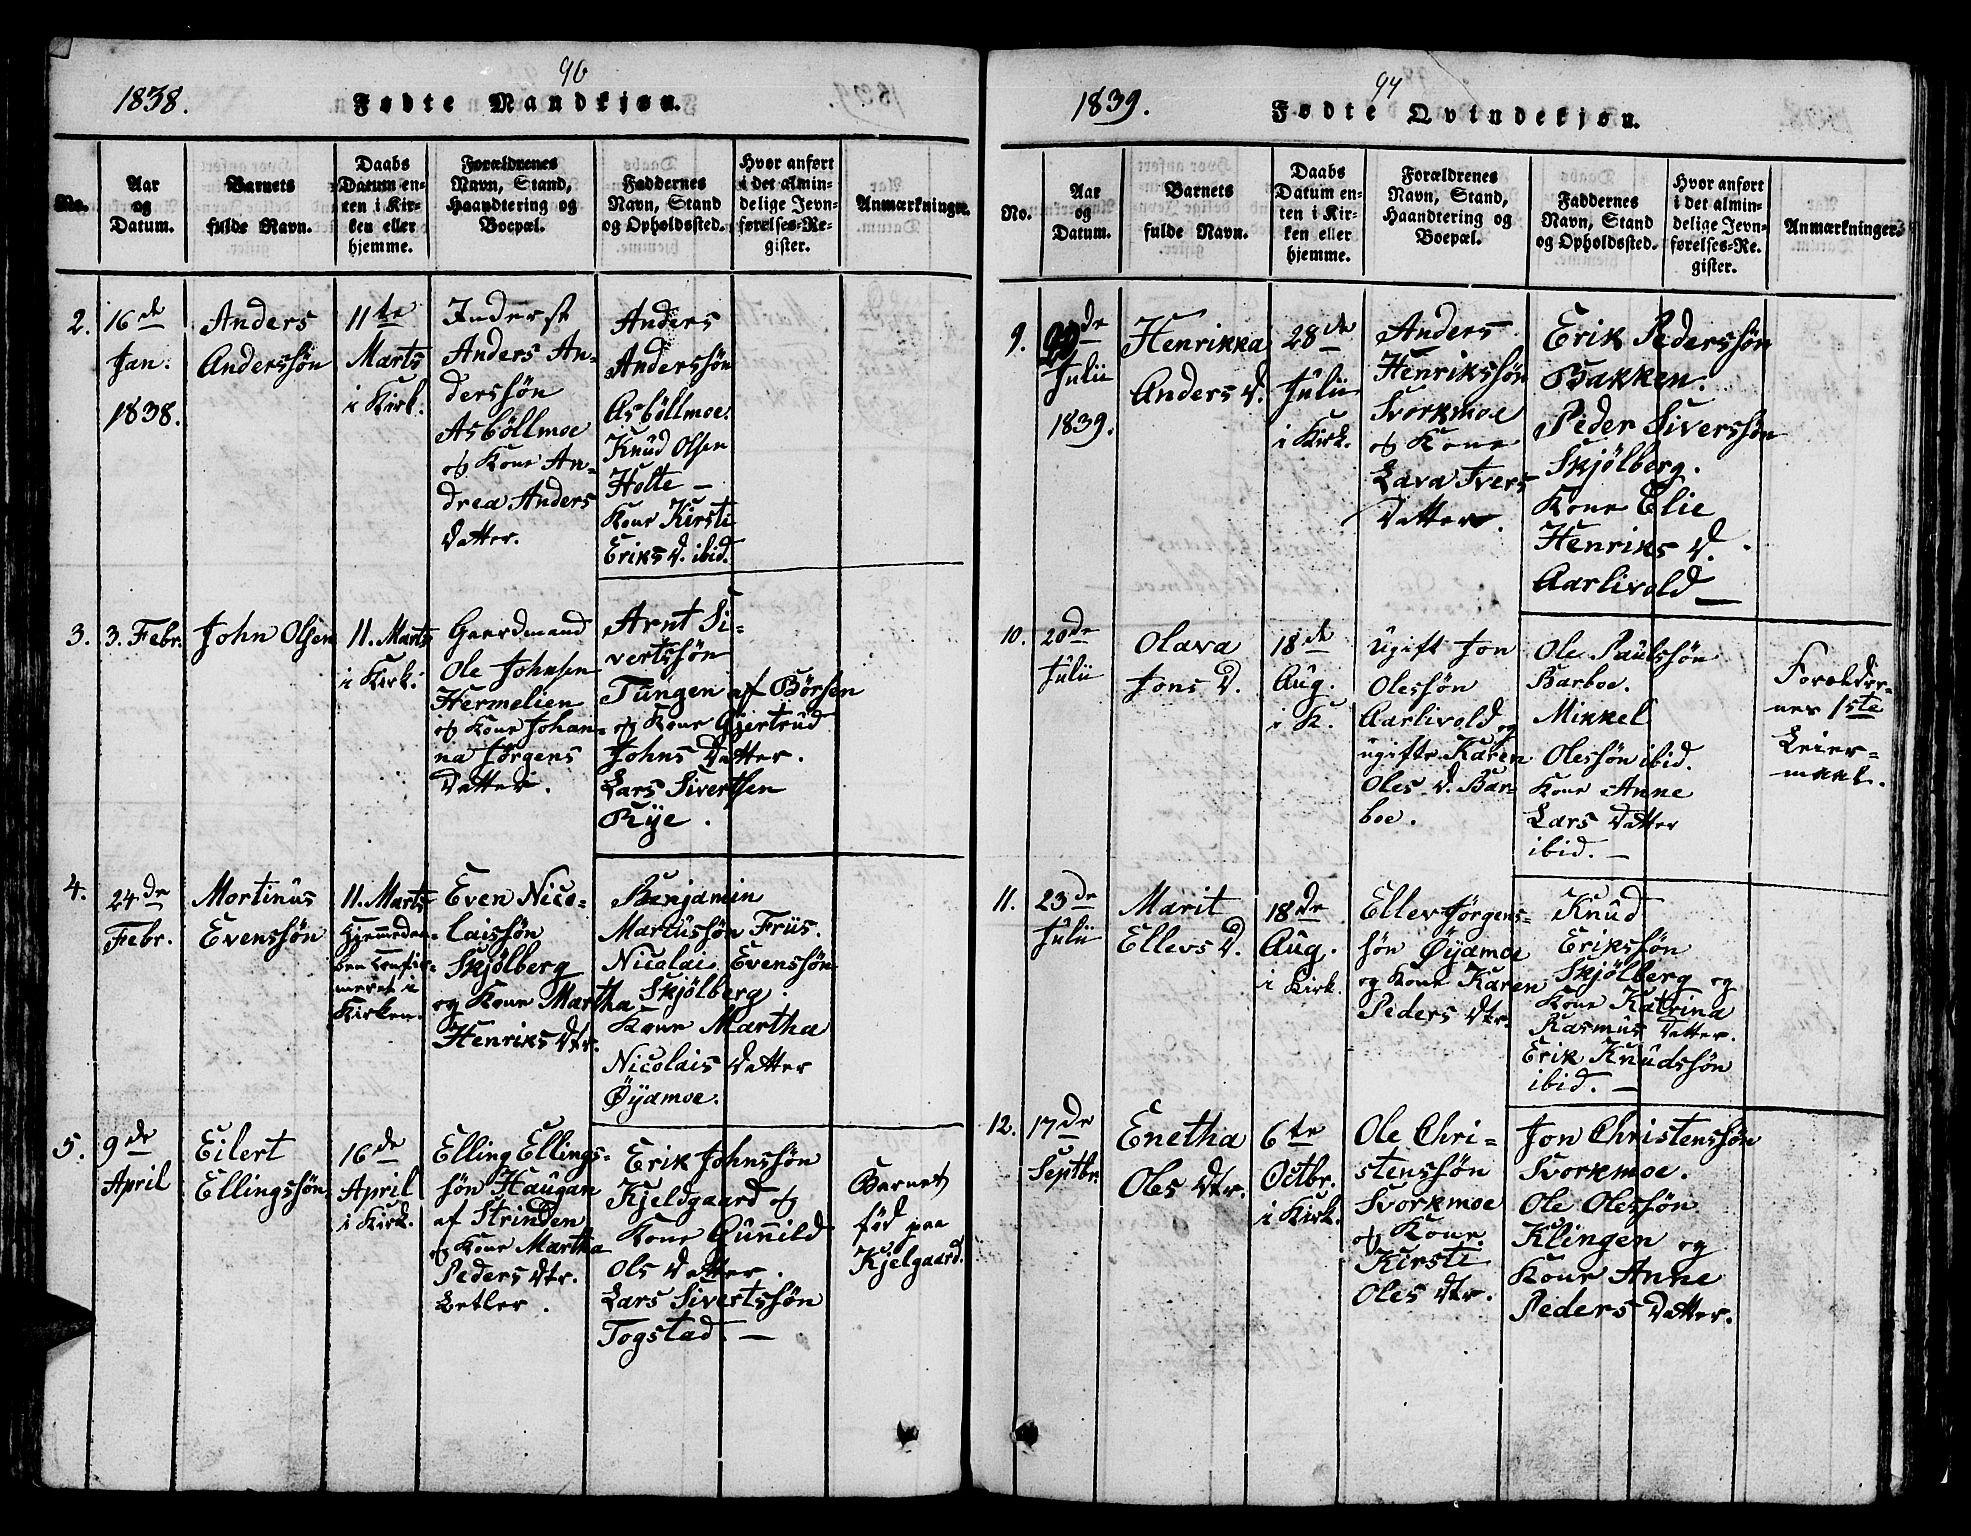 96
1838.
Fødte Mandkjøn.
No.
Aar
og
Datum.
Barnets
fulde Navn.
Daabs
Datum en-
ten i Kir-
ken eller
hjemme.
Forældrenes
Navn, Stand,
Haandtering og
Boepæl.
Faddernes
Navn, Stand
og Opholdssted.
Hvor anført
i det almin-
delige Jevn-
førelses-Re-
gister.
Anmærkninger.
2.
16de
Jan:
1838.
Anders
Anderssön
11te
Marts
i Kirk.
Inderst
Anders An-
derssön
Asböllmoe
og Kone An-
drea Anders
Datter.
Anders
Anderssön
Asböllmoe.
Knud Olsen
Holte –
Kone Kirsti
Eriks D. ibid.
3.
3. Febr.
John Olsen
11. Marts
i Kirk.
Gaardmand
Ole Johnsen
Hermelien
og Kone Johan-
na Jörgens
Datter.
Arnt Si-
vertssön
Tungen af Börsen
og Kone Gjertrud
Johns Datter.
Lars Sivertsen
Rye.
4.
24de
Febr.
Mortinus
Evenssön
11. Marts
Hjemmedaa-
ben Confir-
meret i
Kirken.
Even Nico-
laissön
Skjölberg
og Kone Martha
Henriks Dtr.
Benjamin
Marcussön Friis.
Nicolai Evenssön
Skjölberg.
Kone Martha
Nicolais Datter
Öyamoe.
5.
9de
April
Eilert
Ellingssön
16de
April
i Kirk.
Elling Ellings-
sön Haugan
af Strinden
og Kone Martha
Peders Dtr.
Letler.
Erik Johnssön
Kjeldgaard og
Kone Gunild
Ols Datter.
Lars Sivertssön
Togstad. –
Barnet
föd paa
Kjelgaard.
94
1839.
Fødte Qvindekjøn.
No.
Aar
og
Datum.
Barnets
fulde Navn.
Daabs
Datum en-
ten i Kir-
ken eller
hjemme.
Forældrenes
Navn, Stand,
Haandtering og
Boepæl.
Faddernes
Navn, Stand
og Opholdssted.
Hvor anført
i det almin-
delige Jevn-
førelses-Re-
gister.
Anmærkninger.
9.
Julii
1839.
Henrikka
Anders D.
28de
Julii
i Kirk.
Anders
Henrikssön
Svorkmoe
og Kone
Lava Ivers
Datter.
Erik Pederssön
Bakken.
Peder Siverssön
Skjölberg.
Kone Elie
Henriks D.
Aarlivold –
10.
20de
Julii
Olava
Jons D.
18de
Aug.
i K.
ugift Jon
Olessön
Aarlivold og
ugifte Karen
Oles D. Bar-
boe.
Ole Paulssön
Barboe.
Mikkel
Olessön ibid.
Kone Anne
Lars Datter
ibid. –
Forældre-
nes 1ste
Leier-
maal.
11.
23de
Julii
Marit
Ellevs D.
18de
Aug.
i Kirk.
Ellev Jörgens-
sön Öyamoe
og Kone Karen
Peders Dtr.
Knud
Erikssön
Skjölberg og
Kone Katrina
Rasmus Datter.
Erik Knudssön
ibid. –
12.
17de
Septbr.
Enetha
Oles Dtr.
6te
Octbr.
i Kirk.
Ole Chri-
stenssön
Svorkmoe
og Kone
Kirsti
Oles Dtr.
Jon Christenssön
Svorkmoe.
Ole Olessön
Klingen og
Kone Anne
Peders Datter.